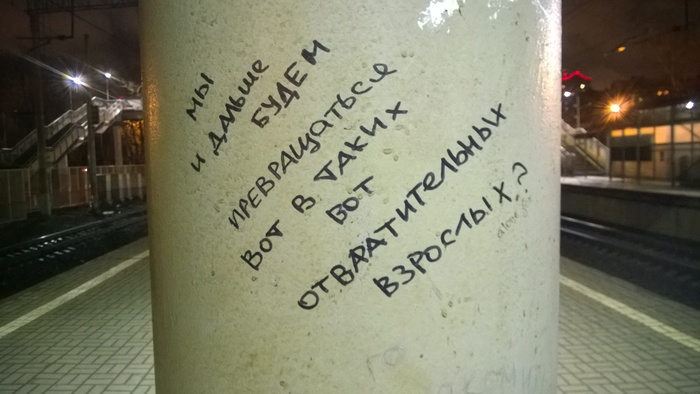 мы
и дальше
будем
превращаться
вот в таких
вот
отвратительных
взрослых?